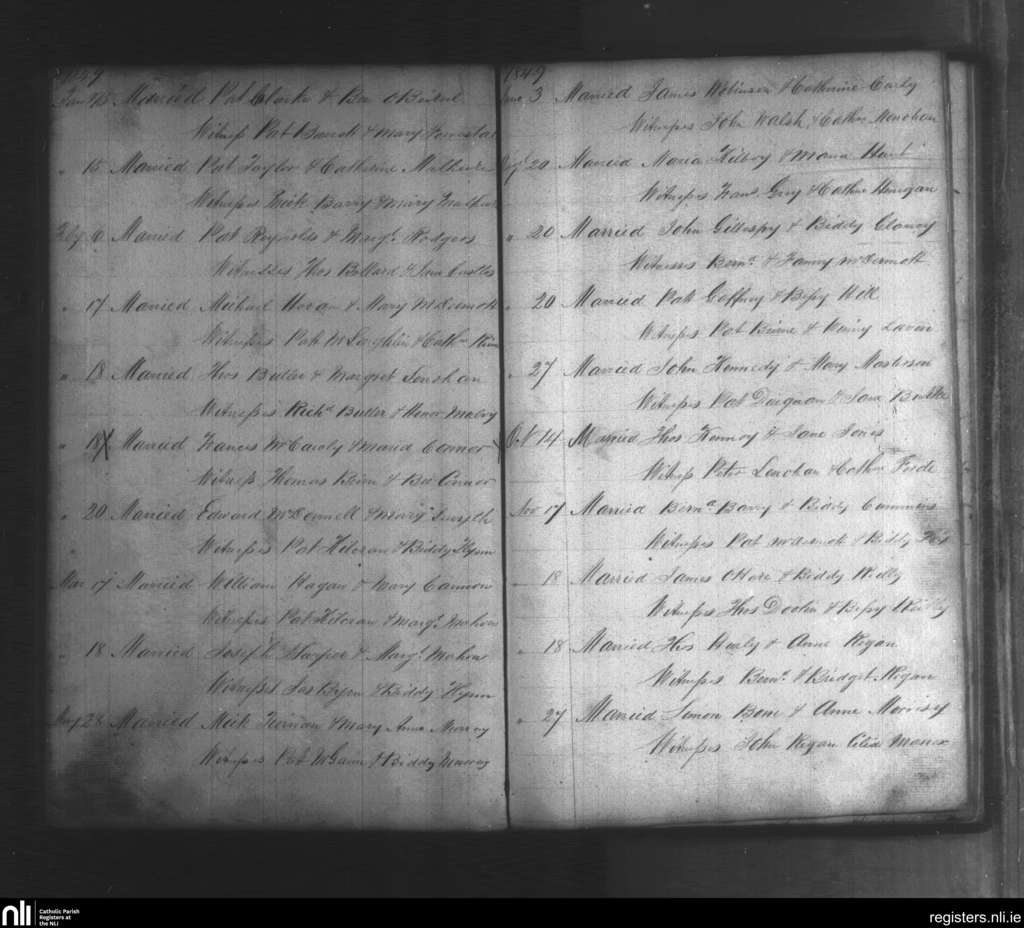 1849
Jan 15 Married Pat Clarke & Bee
Witness Pat & Mary
" 15 Married Pat Taylor & Catherine
Witnesses Mick Barry & Mary
Feby 6 Married Pat Reynolds & Margt. Rodgers
Witnesses Thos Bollard &
" 17 Married Michael Horan & Mary McDermott
Witnesses Pat McLoughlin & Cathn
" 18 Married Thos Butler & Margret
Witnesses Richd Butler & Honor
" 18 X Married Francis McCawly & Maria Connor
Witness Thomas Beirn & Bee Connor
" 20 Married Edward McDonnell & Margt Smyth
Witnesses Pat Hiloran & Biddy Flynn
Mar 17 Married William Hagan & Mary Cannon
Witnesses Pat Hiloran & Margt. Mahon
" 18 Married Joseph Harper & Margt. Mahon
Witnesses Jas Byrn & Biddy Flynn
28 Married Mick Kirwan & Mary Anne Murray
Witnesses Pat McGann & Biddy Murray
1849
June 3 Married James Robinson & Catherine Early
Witnesses John Walsh & Cathne Monohan
20 Married Maria Kilroy & Maria Hunt
Witnesses & Cathne
" 20 Married John Gillespy & Biddy
Witnesses Bernd. & Fanny McDermott
" 20 Married Pat Gaffney & Bessy
Witnesses Pat Beirne & Lavin
" 27 Married John Kennedy & Mary Masterson
Witnesses Pat Duignan & Jane
Oct 14 Married Thos & Jane Jones
Witness Peter Lenehan & Cathn Forde
Nov 17 Married Bernd Barry & Biddy Cummins
Witnesses Pat McDermott & Biddy
" 18 Married James OHara & Biddy Reilly
Witnesses Thos Doolin & Bessy
" 18 Married Thos Hurly & Anne Regan
Witnesses Bernd. & Bridget Regan
" 27 Married Simon & Anne Morrisy
Witnesses John Regan Celia
nli
Catholic Parish
Registers at
the NLI
registers.nli.ie